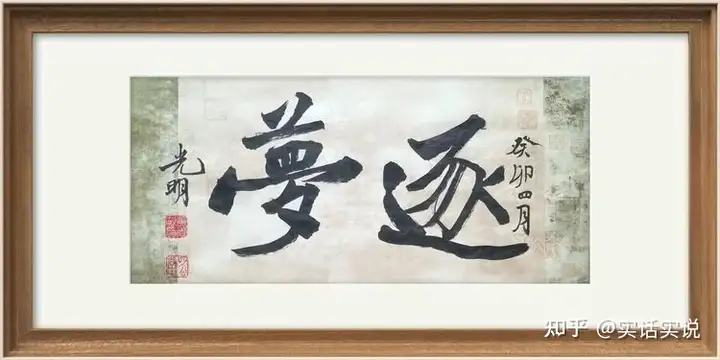 癸卯四月
逐夢
光明
知乎 @实话实说